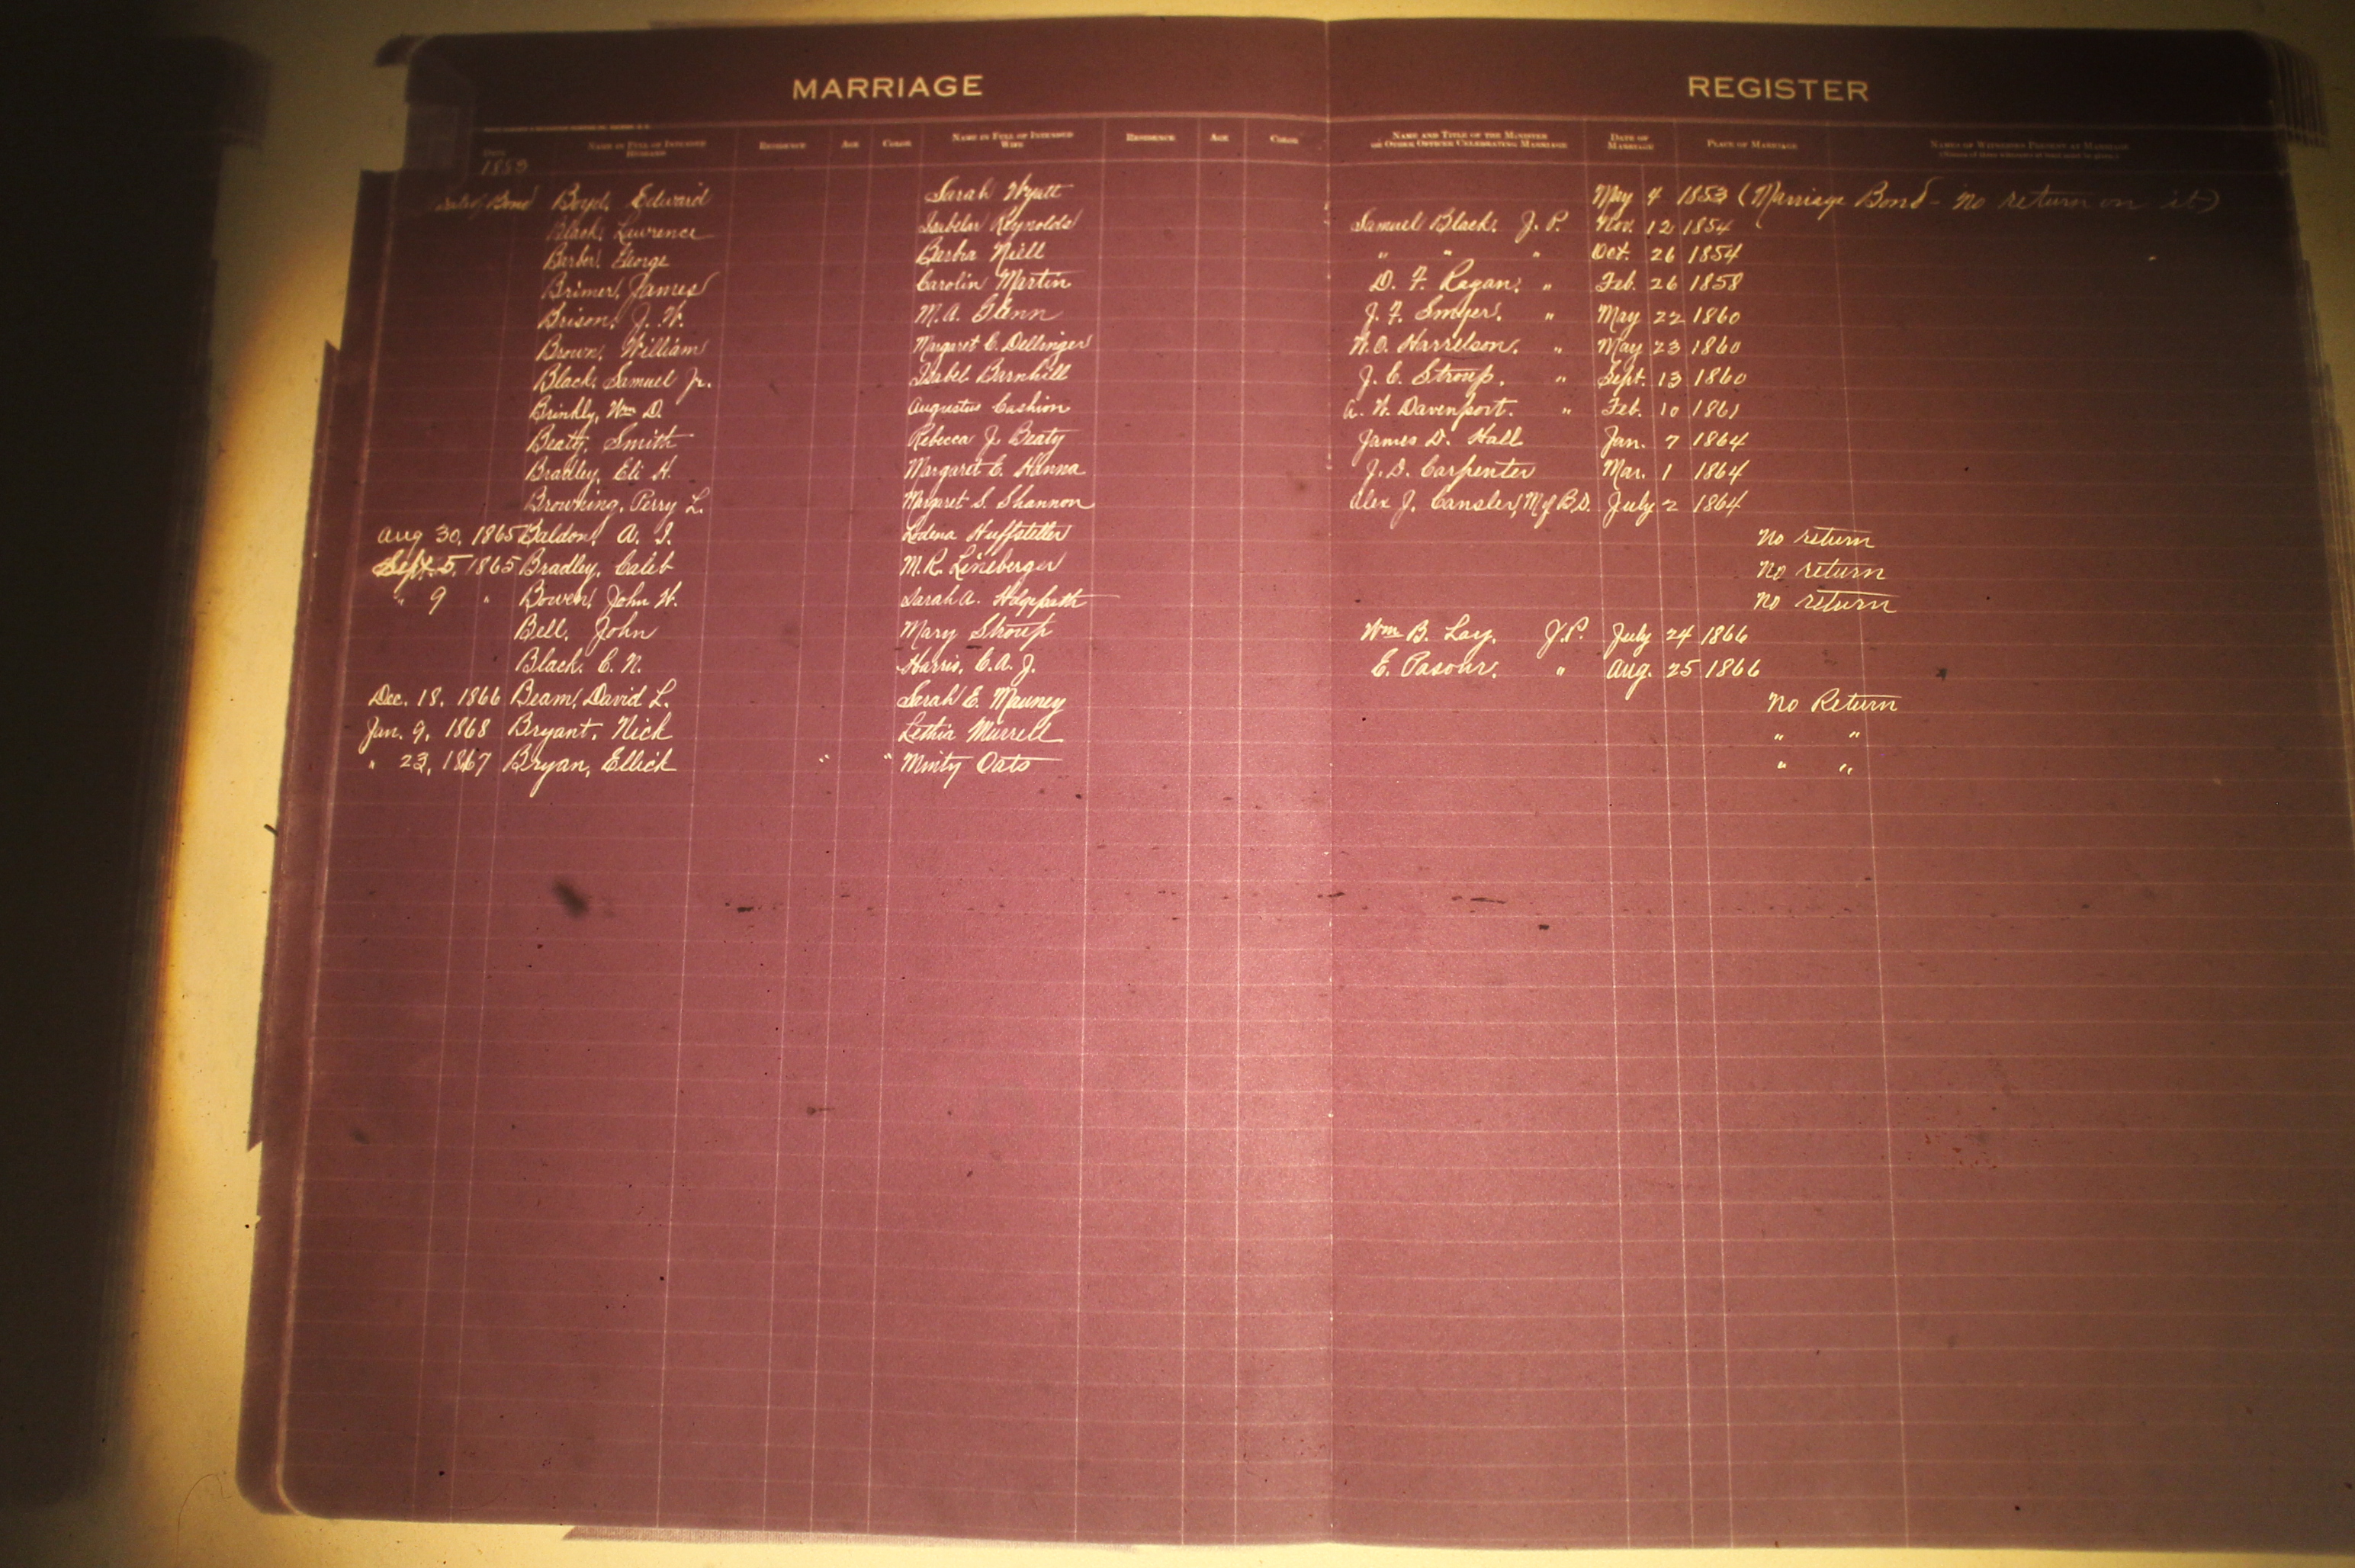 MARRIAGE REGISTER
Date Name in Full of Intended Husband Residence Age Color Name in Full of Intended Wife Residence Age Color Name and Title of the Minister or Other Officer Celebrating Marriage Date of Marriage Place of Marriage Names of Witnesses Present at Marriage
1853
Date of Bond Boyd, Edward Sarah Wyatt May 4 1853 (Marriage Bond - no return on it)
Black, Lawrence Isabelar Reynolds Samuel Black, J. P. Nov. 12 1854
Barber, George Barbra Niell " " " Oct. 26 1854
Brimer, James Carolin Martin D. F. Ragan, " Feb. 26 1858
Brison, J. W. M. A. Glenn J. F. Smyer, " May 22 1860
Brown, William Margaret C. Dellinger W. O. Harrelson, " May 23 1860
Black, Samuel Jr. Isabel Barnhill J. C. Stroup, " Sept. 13 1860
Brinkly, Wm D. Augustus Cashion A. W. Davenport. " Feb. 10 1861
Beatty, Smith Rebecca J. Beaty James D. Hall Jan. 7 1864
Bradley, Eli H. Margaret E. Hanna J. D. Carpenter Mar. 1 1864
Browning, Perry L. Margaret S. Shannon Alex J. Cansler, M of B.D. July 2 1864
Aug 30, 1865 Baldon, A. J. Ludena Huffstetler No return
Sept. 5, 1865 Bradley, Caleb M. R. Lineberger No return
" 9 " Bowen, John W. Sarah A. Hdgepath No return
Bell, John Mary Stroup Wm B. Lay, J. P. July 24 1866
Black, C. N. Harris, C. A. J. E. Pasour, " Aug. 25 1866
Dec. 18, 1866 Beam, David L. Sarah E. Mauney No Return
Jan. 9, 1868 Bryant, Nick Lethia Murrell " "
" 23, 1867 Bryan, Ellick " " Minty Oats " "